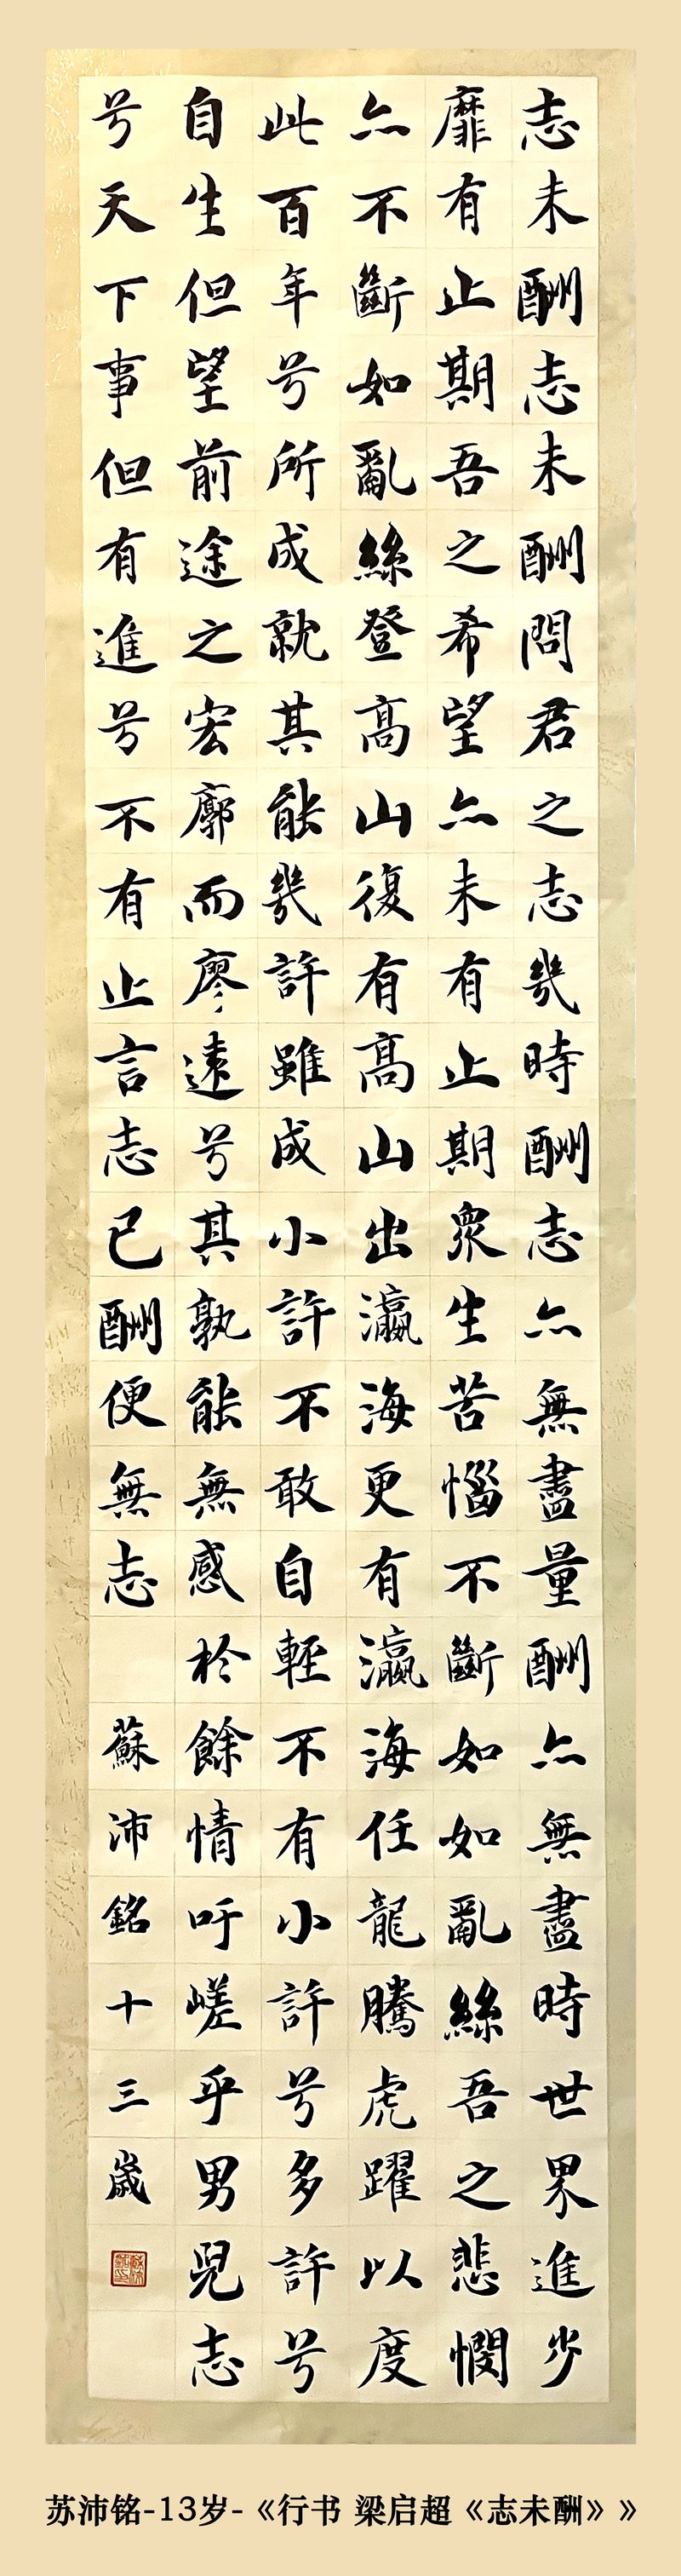 志未酬志未酬問君之志幾時酬志亦無盡量酬亦無盡時世界進步
靡有止期吾之希望亦未有止期衆生苦惱不斷如如亂絲吾之悲憫
亦不斷如亂絲登高山復有高山出瀛海更有瀛海任龍騰虎躍以度
此百年兮所成就其能幾許雖成小許不敢自輕不有小許兮多許兮
自生但望前途之宏廓而廖遠兮其孰能無感於餘情吁嗟乎男兒志
兮天下事但有進兮不有止言志已酬便無志
蘇沛銘十三歲
苏沛铭-13岁-《行书 梁启超《志未酬》》